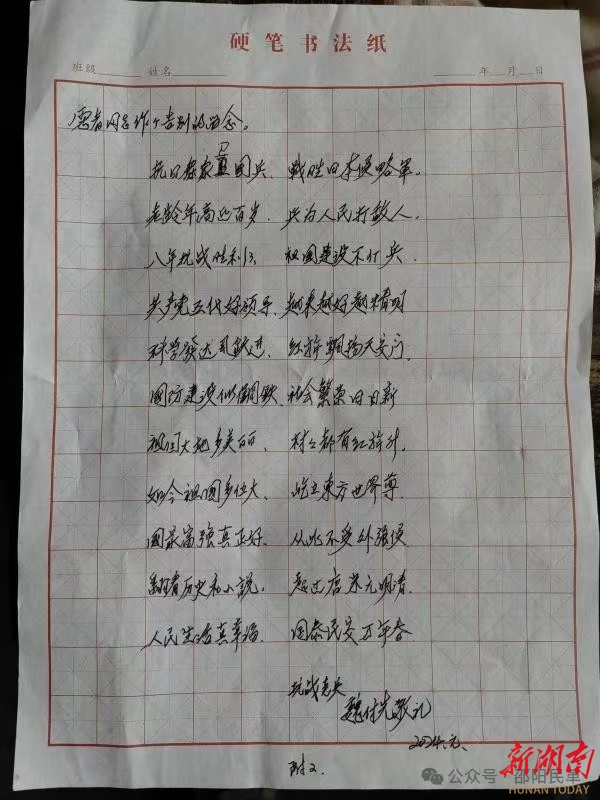 硬笔书法纸
班级 姓名 年 月 日
愿看网民作个告别的留念。
抗日卫国兵、 战胜日本侵略军。
老龄年高近百岁、 兵为人民打敌人。
八年抗战胜利了、 祖国建设不忙兵、
共产党五代好领导、 越来越好越精明
科学发达飞跃进、 红旗飘扬天安门、
国防建设似钢铁、 社会繁荣日日新
祖国大地多美丽、 村村都有红旗升、
如今祖国多伟大、 屹立东方世界尊、
国家富强真正好、 从此不受外强侵
翻看历史和小说, 超过唐宋元明清、
人民生活真幸福、 国泰民安万年春
抗战老兵
魏付先敬礼
2024.元.
附2、
公众号 邵阳民革
新湖南
HUNAN TODAY